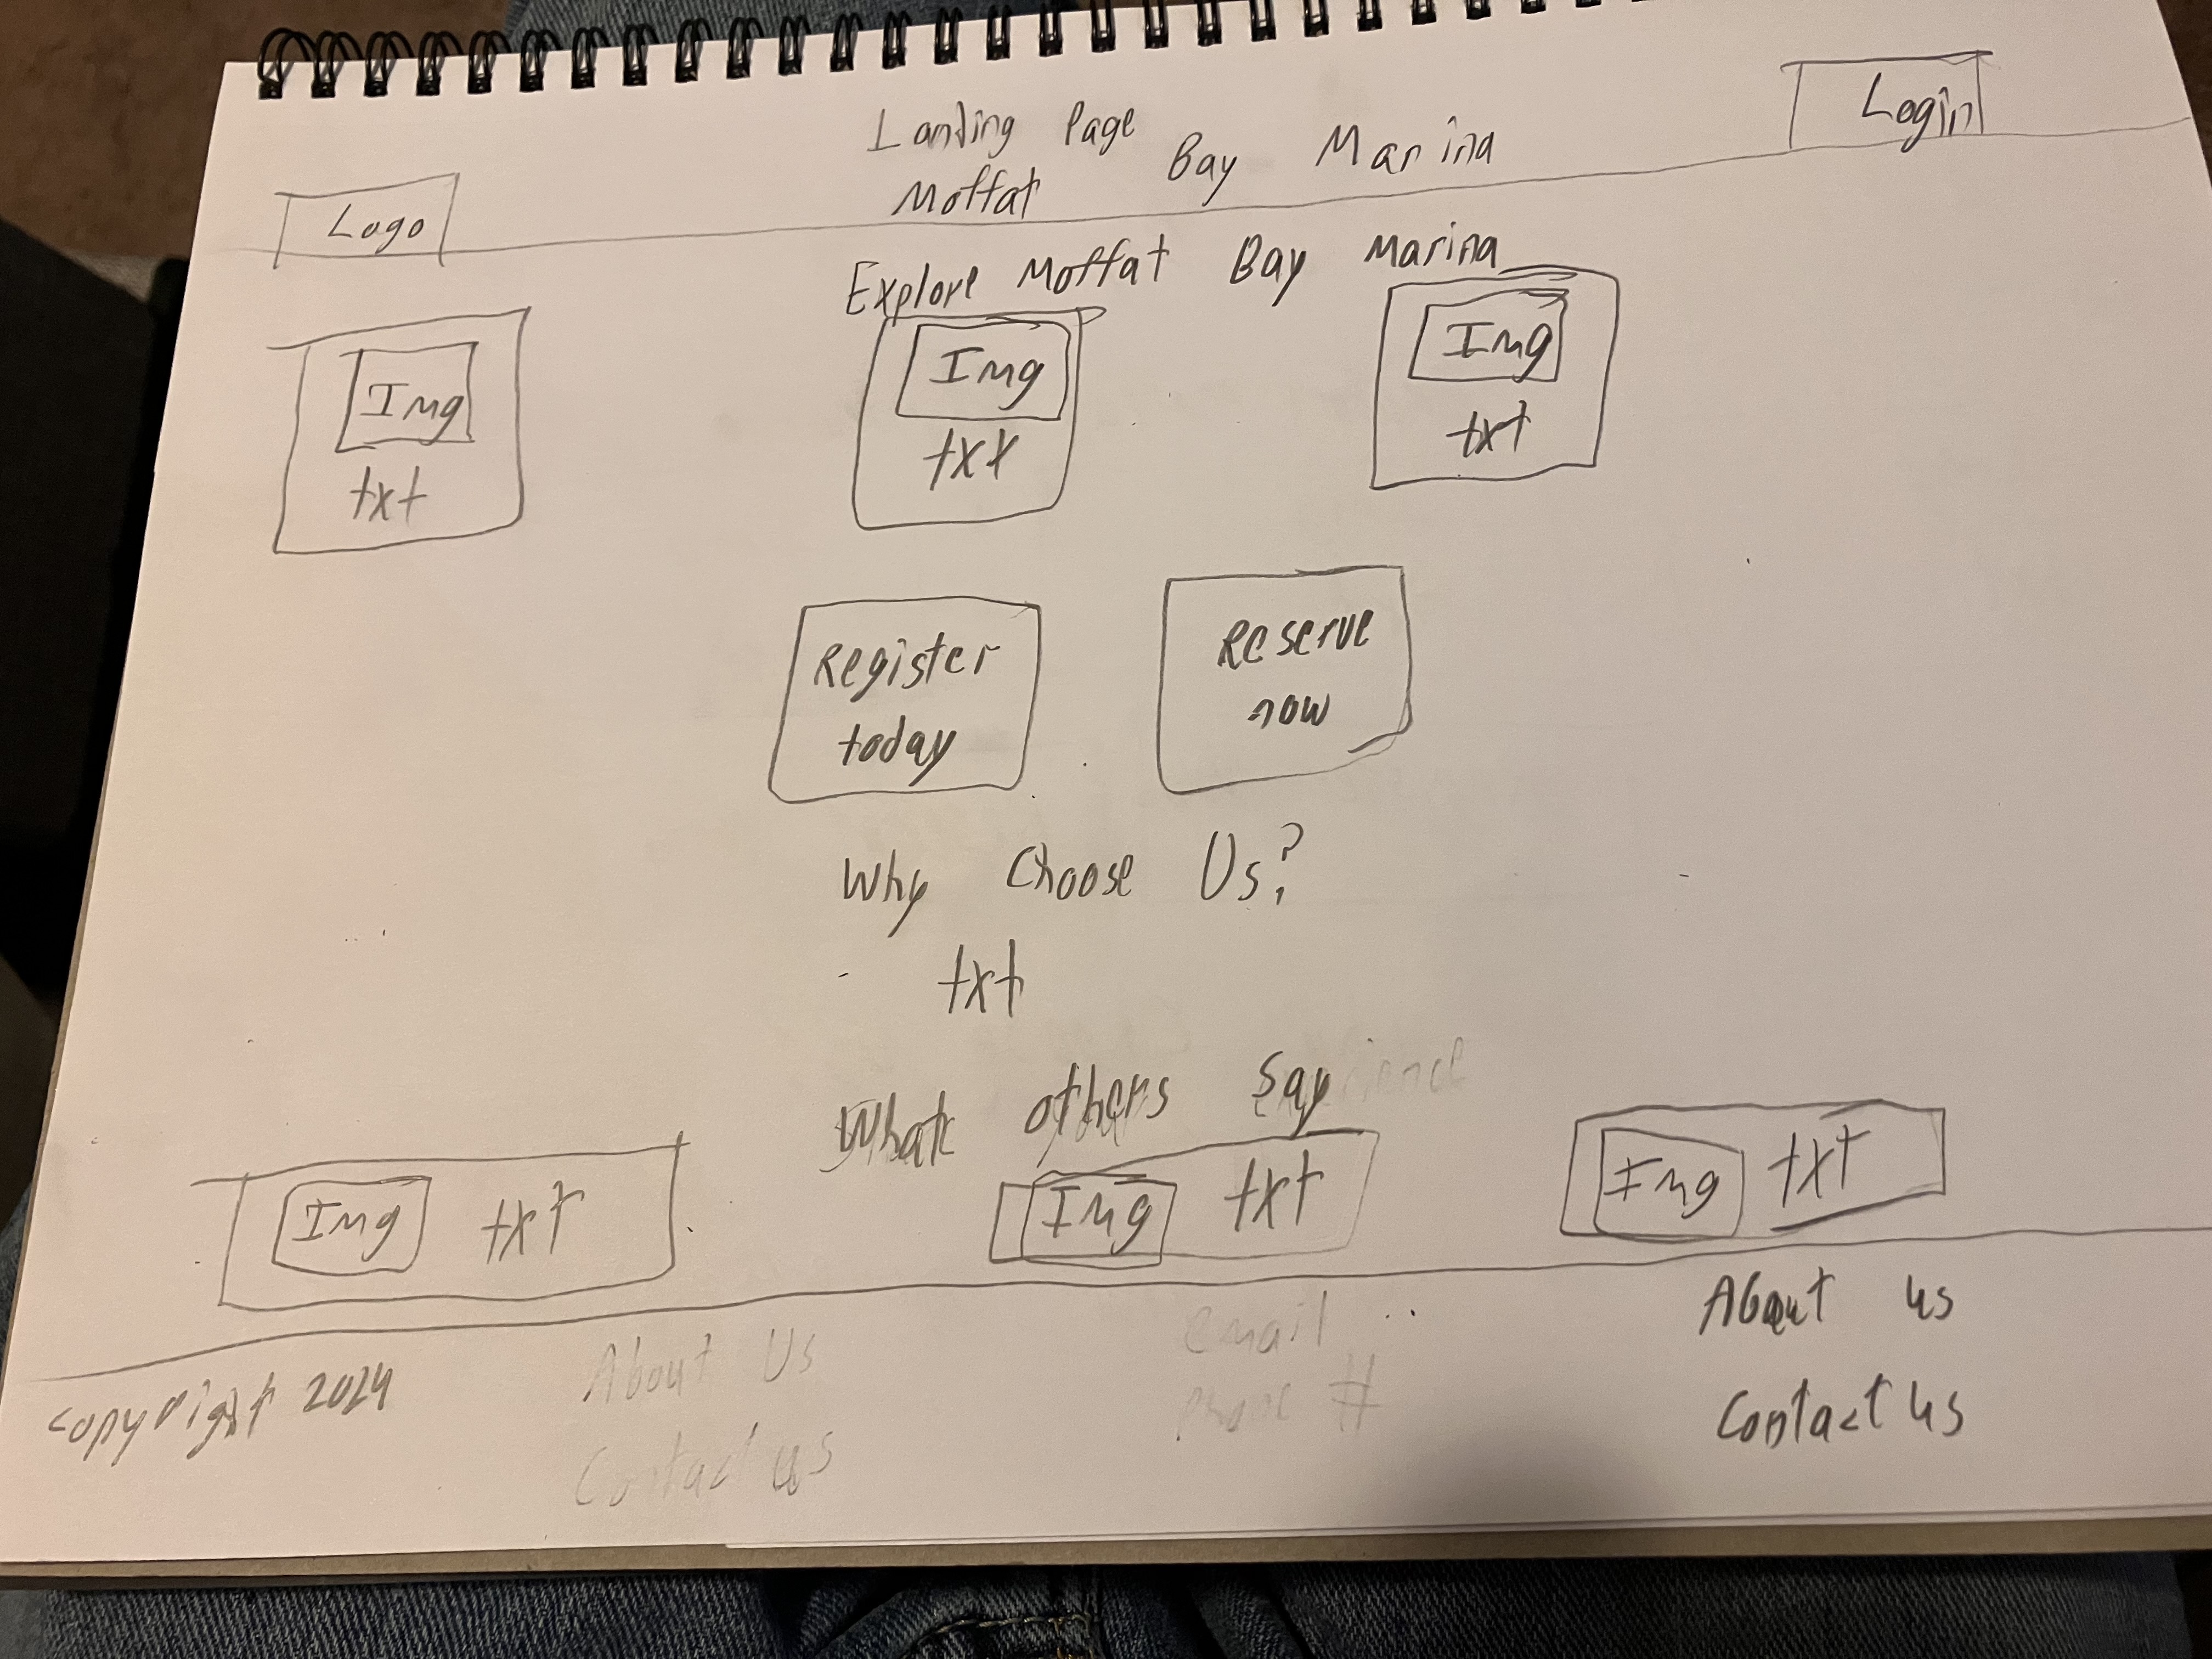 Landing Page
Login
Moffat Bay Marina
Logo
Explore Moffat Bay Marina
Img
txt
Img
txt
Img
txt
Register
today
Reserve
now
Why Choose Us?
txt
What others say
Img txt
Img txt
Img txt
About us
Contact us
copyright 2024
About Us
Contact us
email
phone #